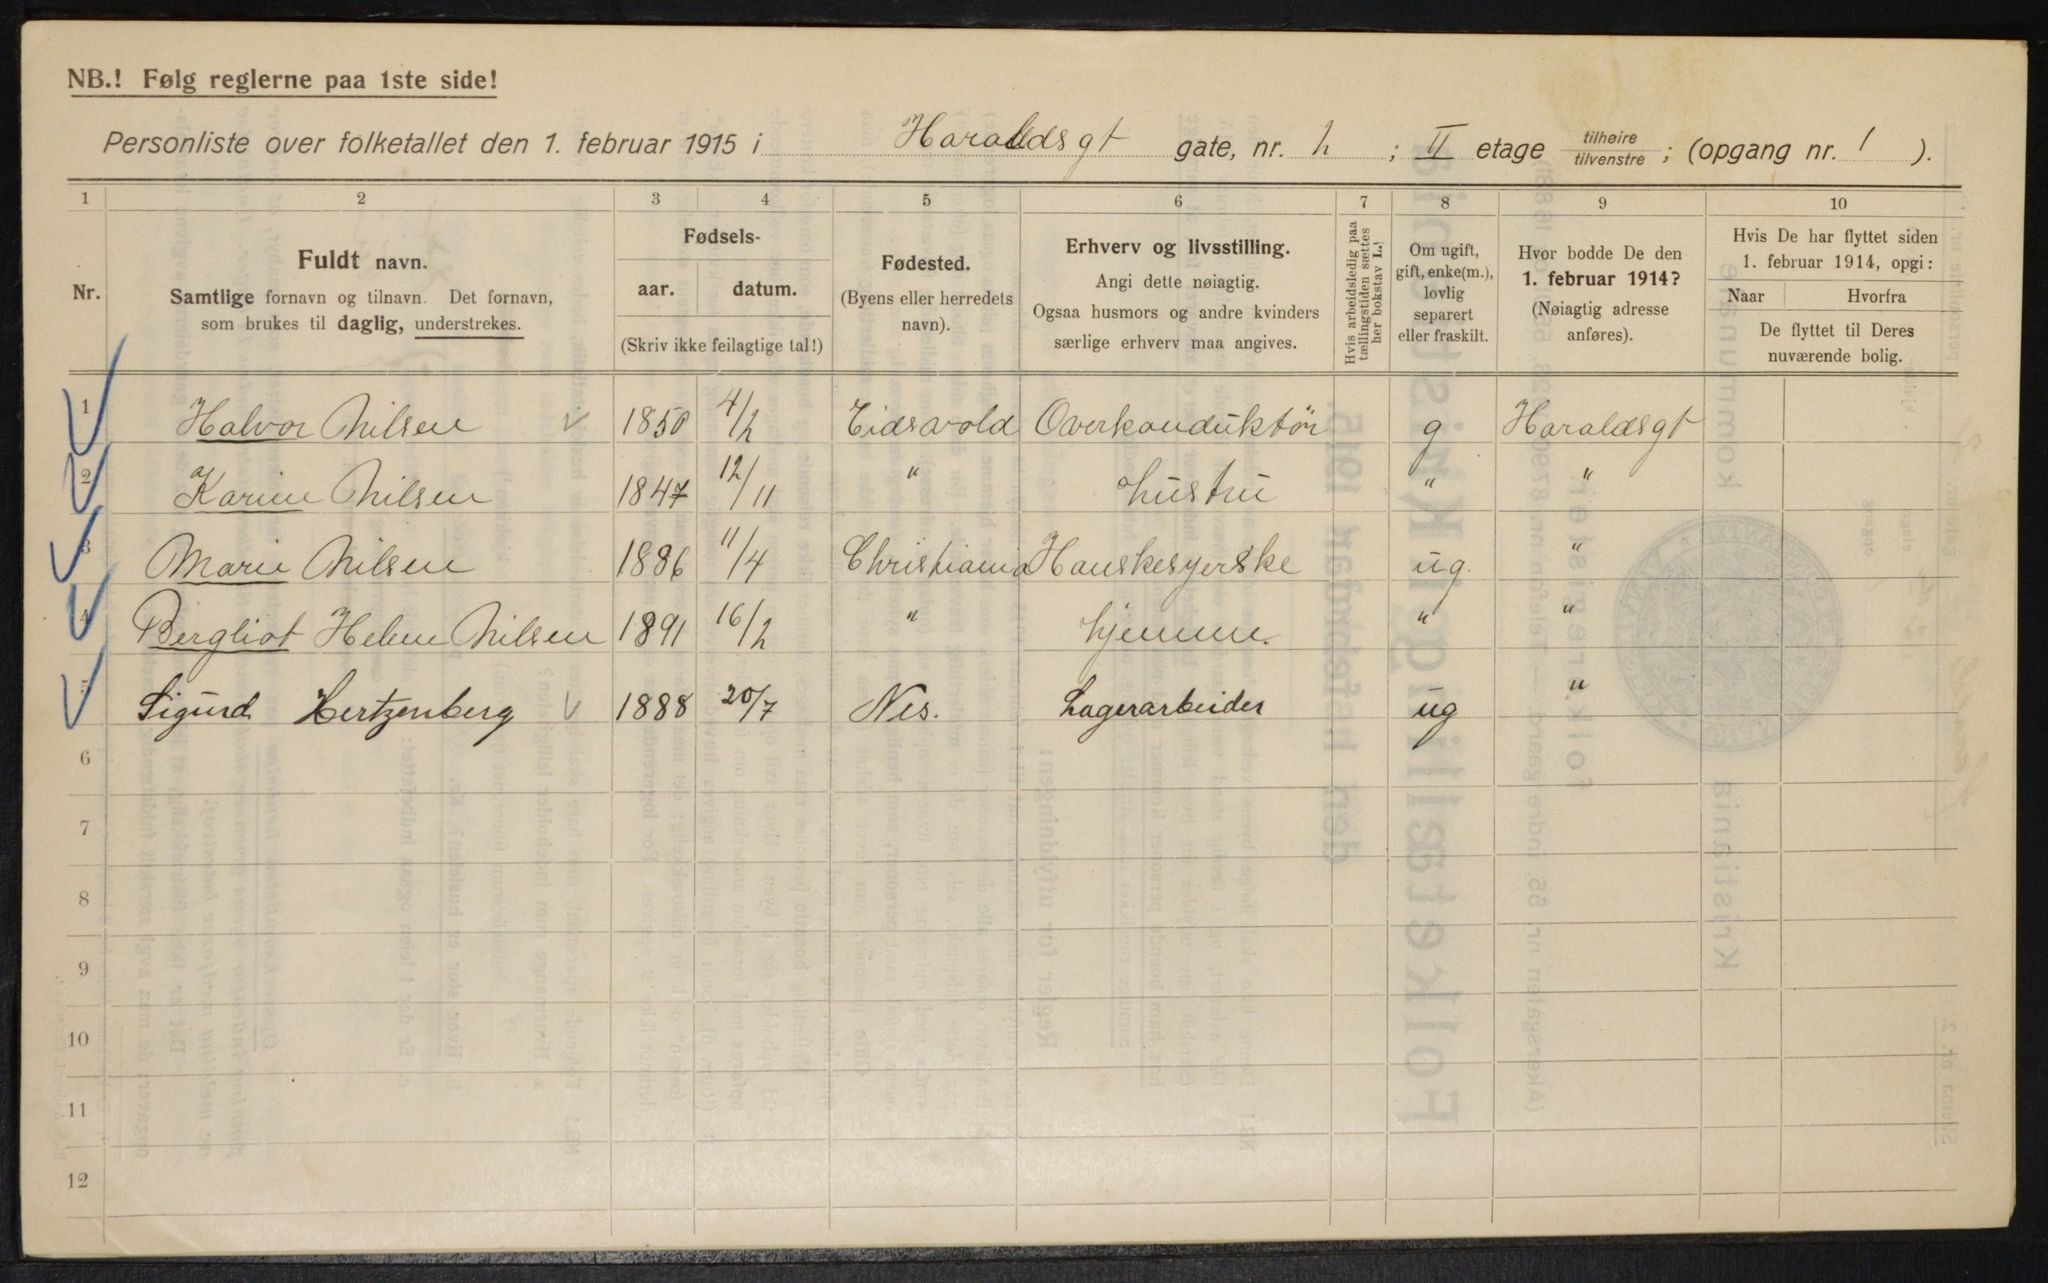 NB.! Følg reglerne paa 1ste side!
Personliste over folketallet den 1. februar 1915 i Haraldsgt gate, nr. 2 ; II etage tilhøire/tilvenstre ; (opgang nr. 1 ).
1 2 3 4 5 6 7 8 9 10
Nr.
Fuldt navn.
Samtlige fornavn og tilnavn. Det fornavn,
som brukes til daglig, understrekes.
Fødsels-
aar. datum.
(Skriv ikke feilagtige tal!)
Fødested.
(Byens eller herredets
navn).
Erhverv og livsstilling.
Angi dette nøiagtig.
Ogsaa husmors og andre kvinders
særlige erhverv maa angives.
Hvis arbeidsledig paa
tællingstiden sættes
her bokstav L.!
Om ugift,
gift, enke(m.),
lovlig
separert
eller fraskilt.
Hvor bodde De den
1. februar 1914?
(Nøiagtig adresse
anføres).
Hvis De har flyttet siden
1. februar 1914, opgi:
Naar Hvorfra
De flyttet til Deres
nuværende bolig.
1 Halvor Nilsen 1850 4/2 Eidsvold Overkonduktör g Haraldsgt
2 Karine Nilsen 1847 12/11 " hustru " "
3 Marie Nilsen 1886 11/4 Christiania Hanskesyerske ug. "
4 Bergliot Helene Nilsen 1891 16/2 " hjemme. " "
5 Sigurd Hertzenberg 1888 20/7 Nes. Lagerarbeider ug "
6
7
8
9
10
11
12